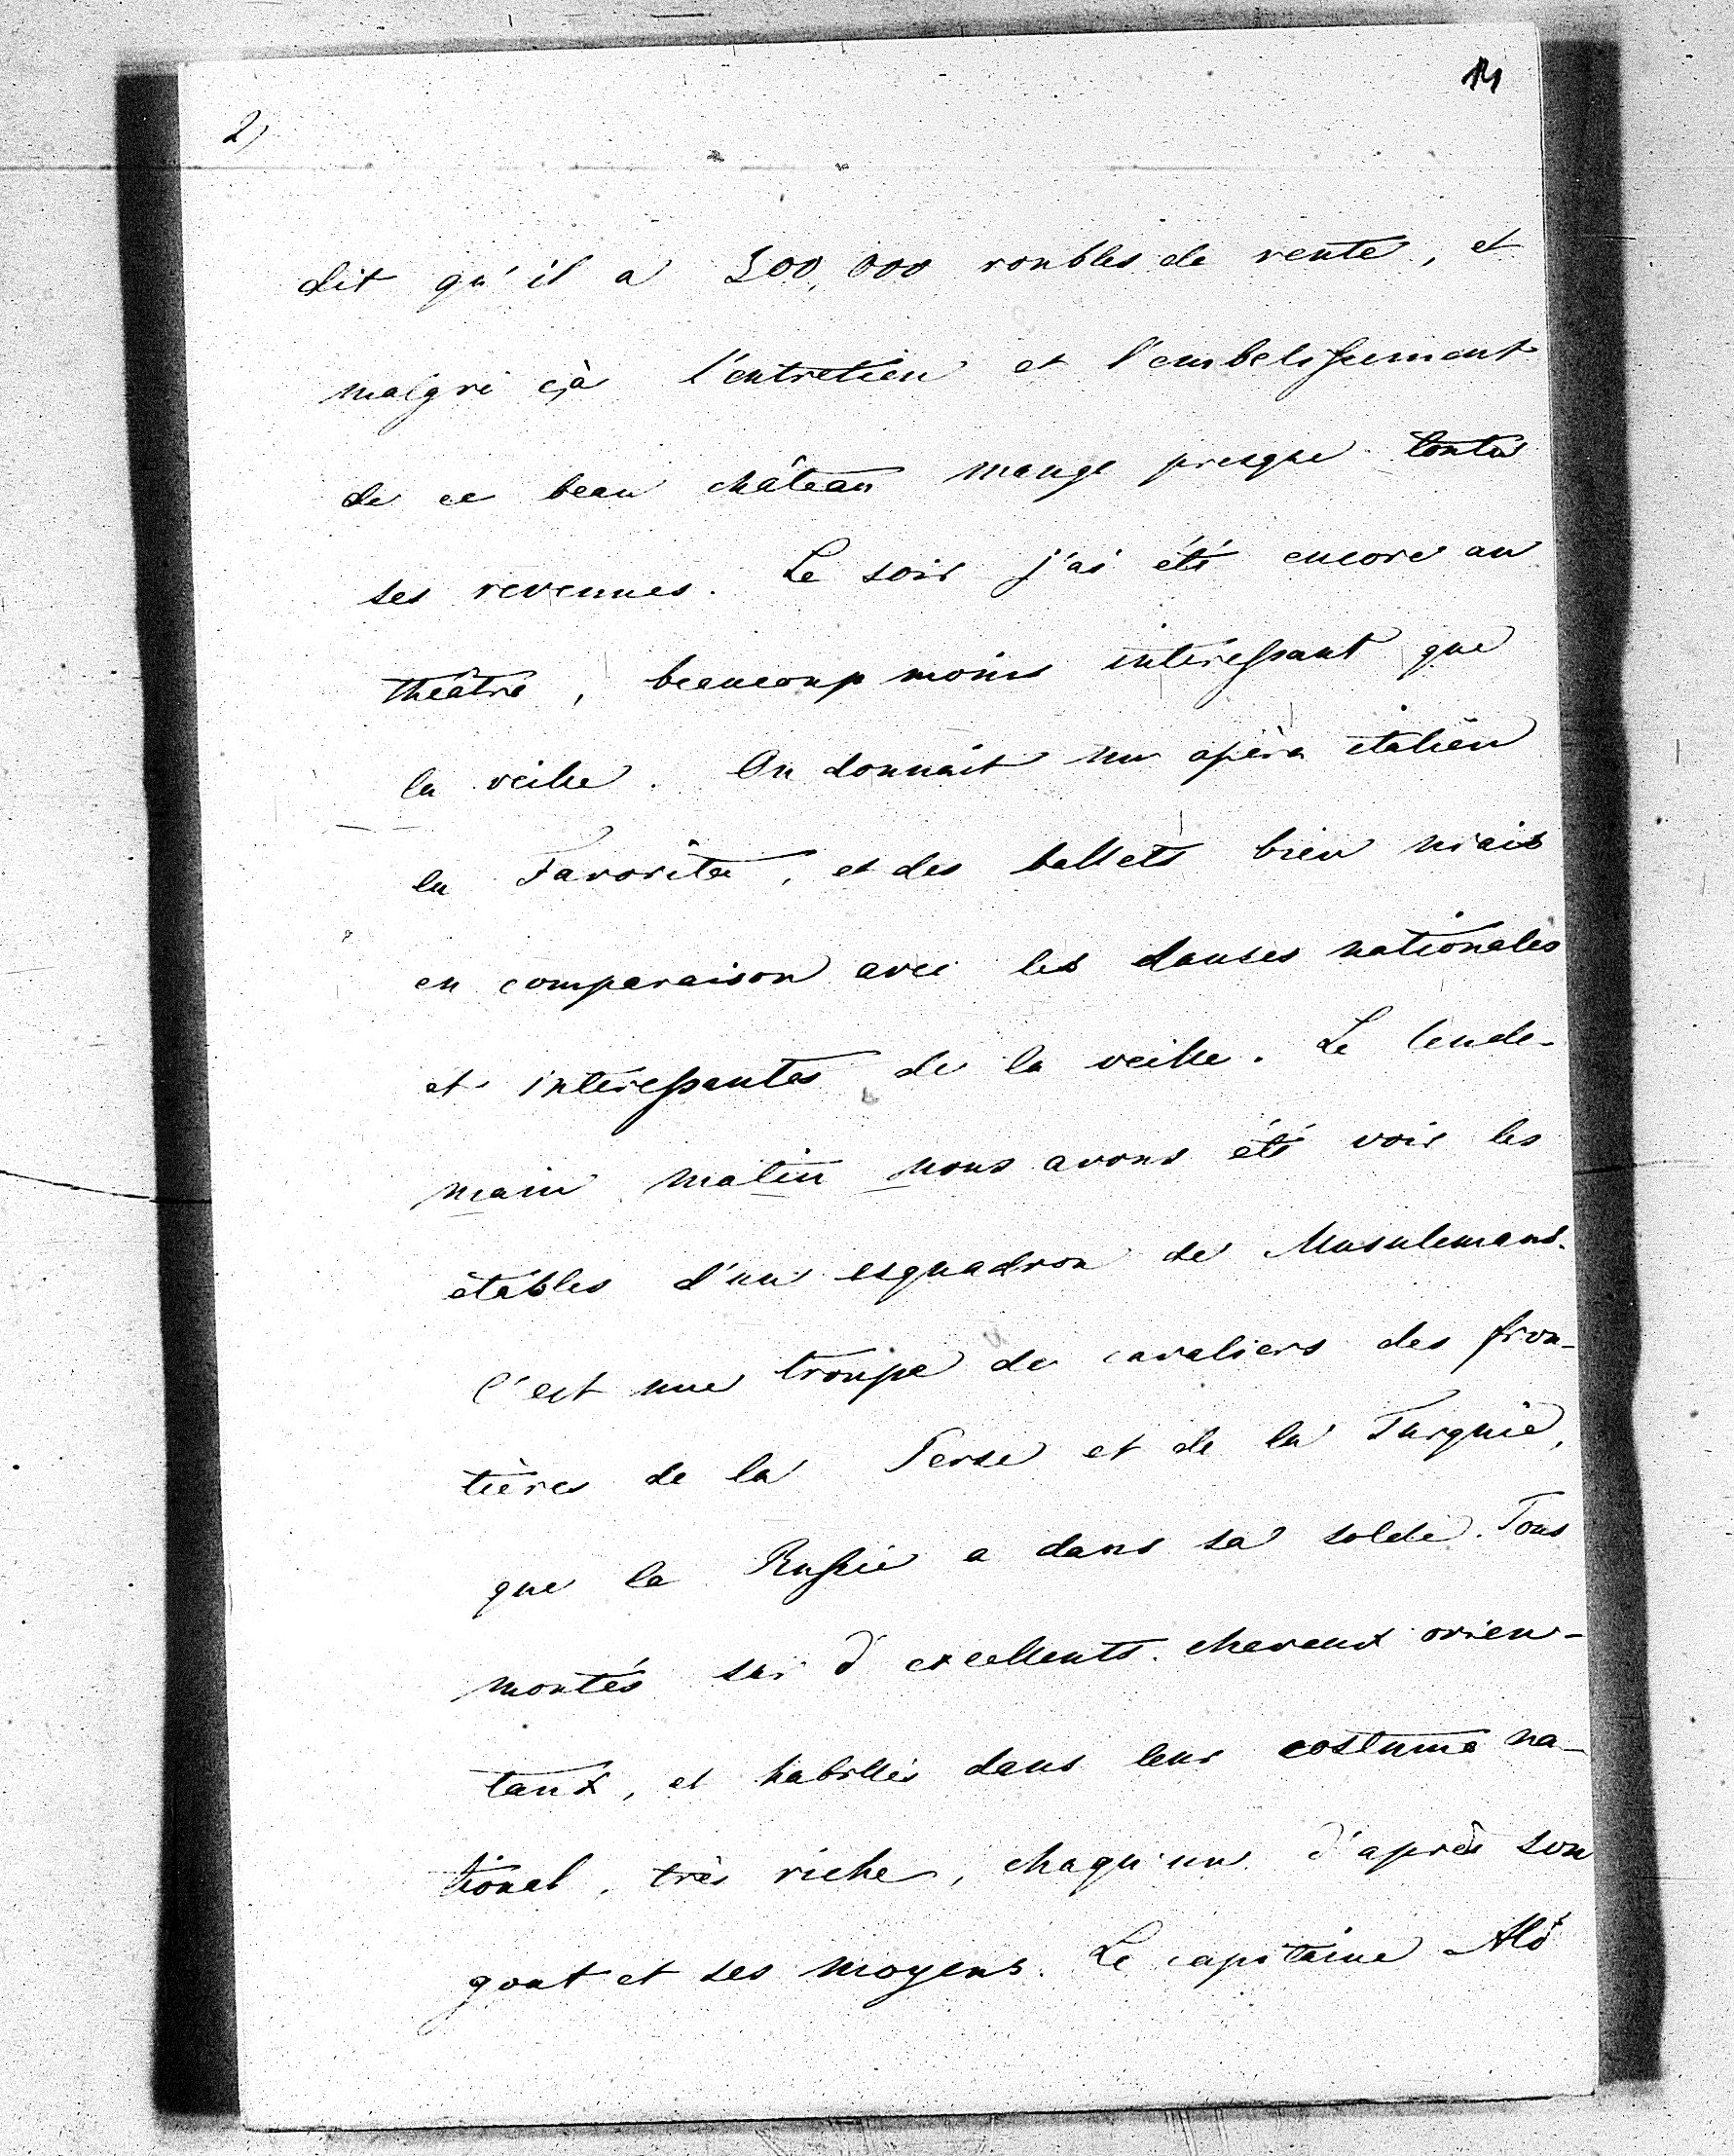 14
2)
dit qu'il a 300,000 roubles de rente, et
malgré çà l'entretien et l'embelissement
de ce beau château mange presque toutes
ses revenues. Le soir j'ai été encore au
théâtre, beaucoup moins intéressant que
la veille. On donnait un opéra italien
la Favorita, et des ballets bien niais
en comparaison avec les danses nationales
et intéressantes de la veille. Le lende-
main matin nous avons été voir les
étables d'un esquadron de Musulemans.
C'est une troupe de cavaliers des fron-
tières de la Perse et de la Turquie,
que la Russie a dans sa solde. Tous
montés sur d'excellents chevaux orien-
taux, et habillés dans leur costume na-
tional, très riche, chaqu'un d'après son
gout et ses moyens. Le capitaine